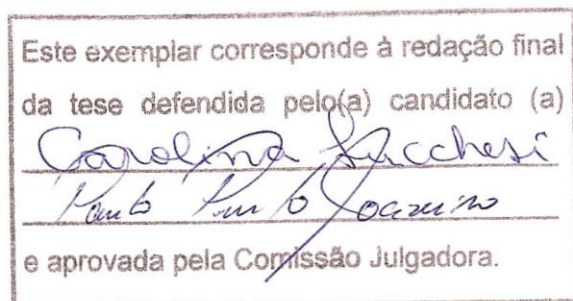 Este exemplar corresponde à redação final
da tese defendida pelo(a) candidato (a)
Carolina Lucchesi
Paulo Pinto Joazeiro
e aprovada pela Comissão Julgadora.